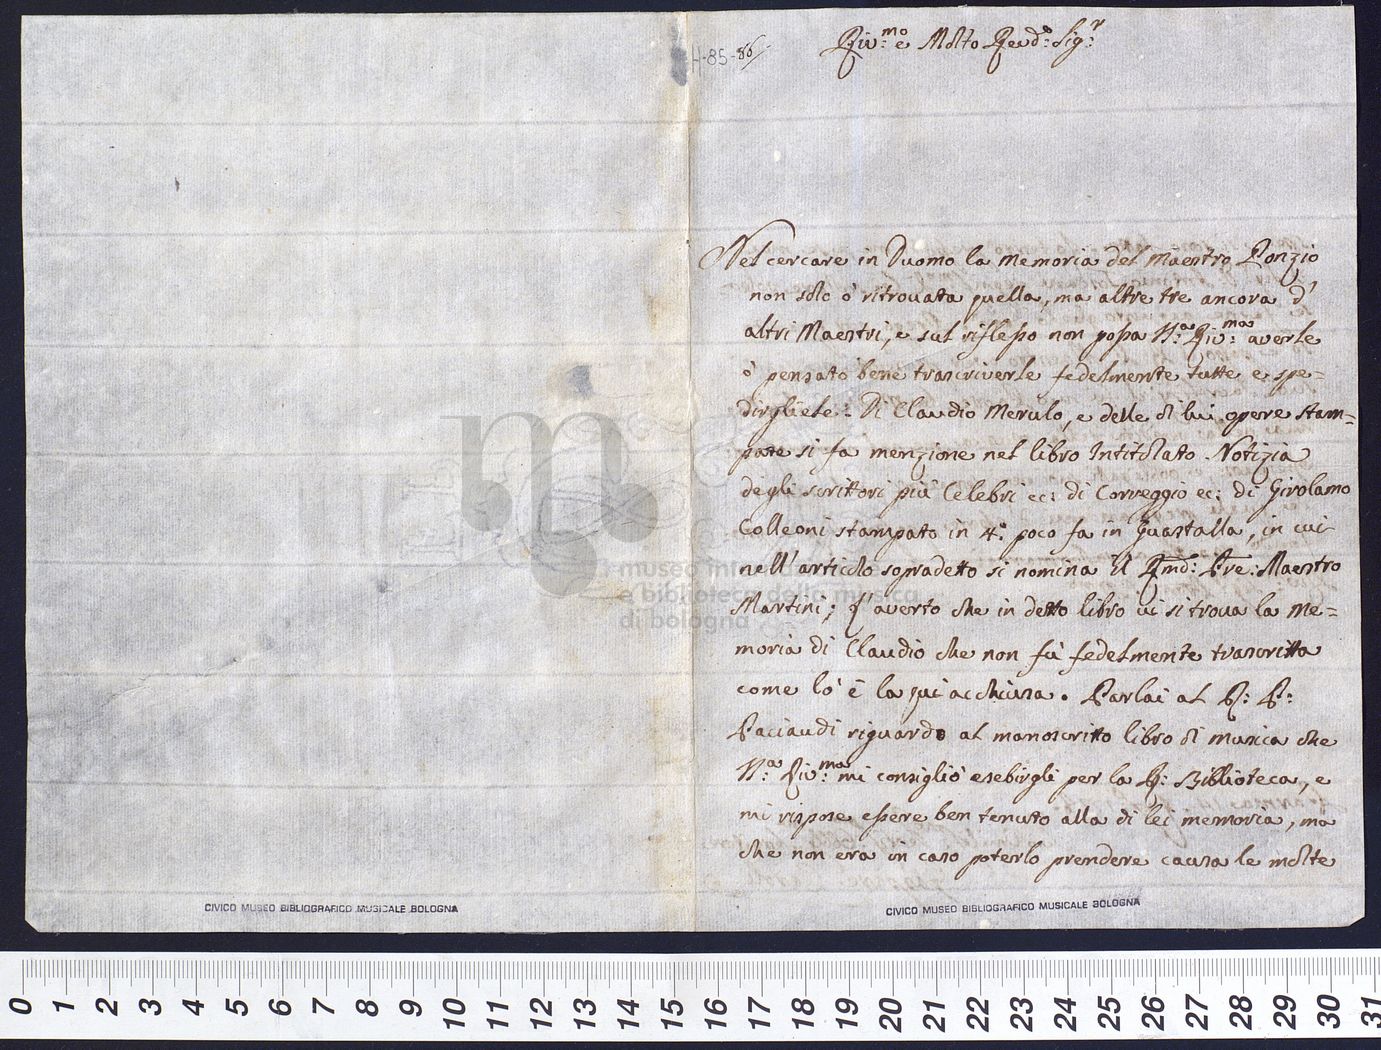 H-85-86
Riv.mo e Molto Revd.o Sig.r
Nel cercare in Duomo la Memoria del Maestro Ponzio
non solo ò ritrovata quella, ma altre tre ancora d'
altri Maestri, e sul riflesso non possa V.a Riv.ma averle
ò pensato bene trascriverle fedelmente tutte e spe=
dirgliele: Di Claudio Merulo, e delle di lui opere stam=
pate si fa menzione nel libro Intitolato Notizia
degli scrittori più Celebri ec: di Correggio ec: di Girolamo
Colleoni stampato in 4.o poco fa in Guastalla, in cui
nell'articolo sopradetto si nomina il Rmd: Pre: Maestro
Martini; L'averto che in detto libro vi si trova la Me=
moria di Claudio che non fù fedelmente trascritta
come lo è la qui acchiusa. Parlai al R: P:
Paciaudi riguardo al manoscritto libro di musica che
V.a Riv.ma mi consigliò esebirgli per la R: Biblioteca, e
mi rispose essere ben tenuto alla di lei memoria, ma
che non era in caso poterlo prendere causa le molte
museo internazionale
e biblioteca della musica
di bologna
CIVICO MUSEO BIBLIOGRAFICO MUSICALE BOLOGNA
CIVICO MUSEO BIBLIOGRAFICO MUSICALE BOLOGNA
0 1 2 3 4 5 6 7 8 9 10 11 12 13 14 15 16 17 18 19 20 21 22 23 24 25 26 27 28 29 30 31